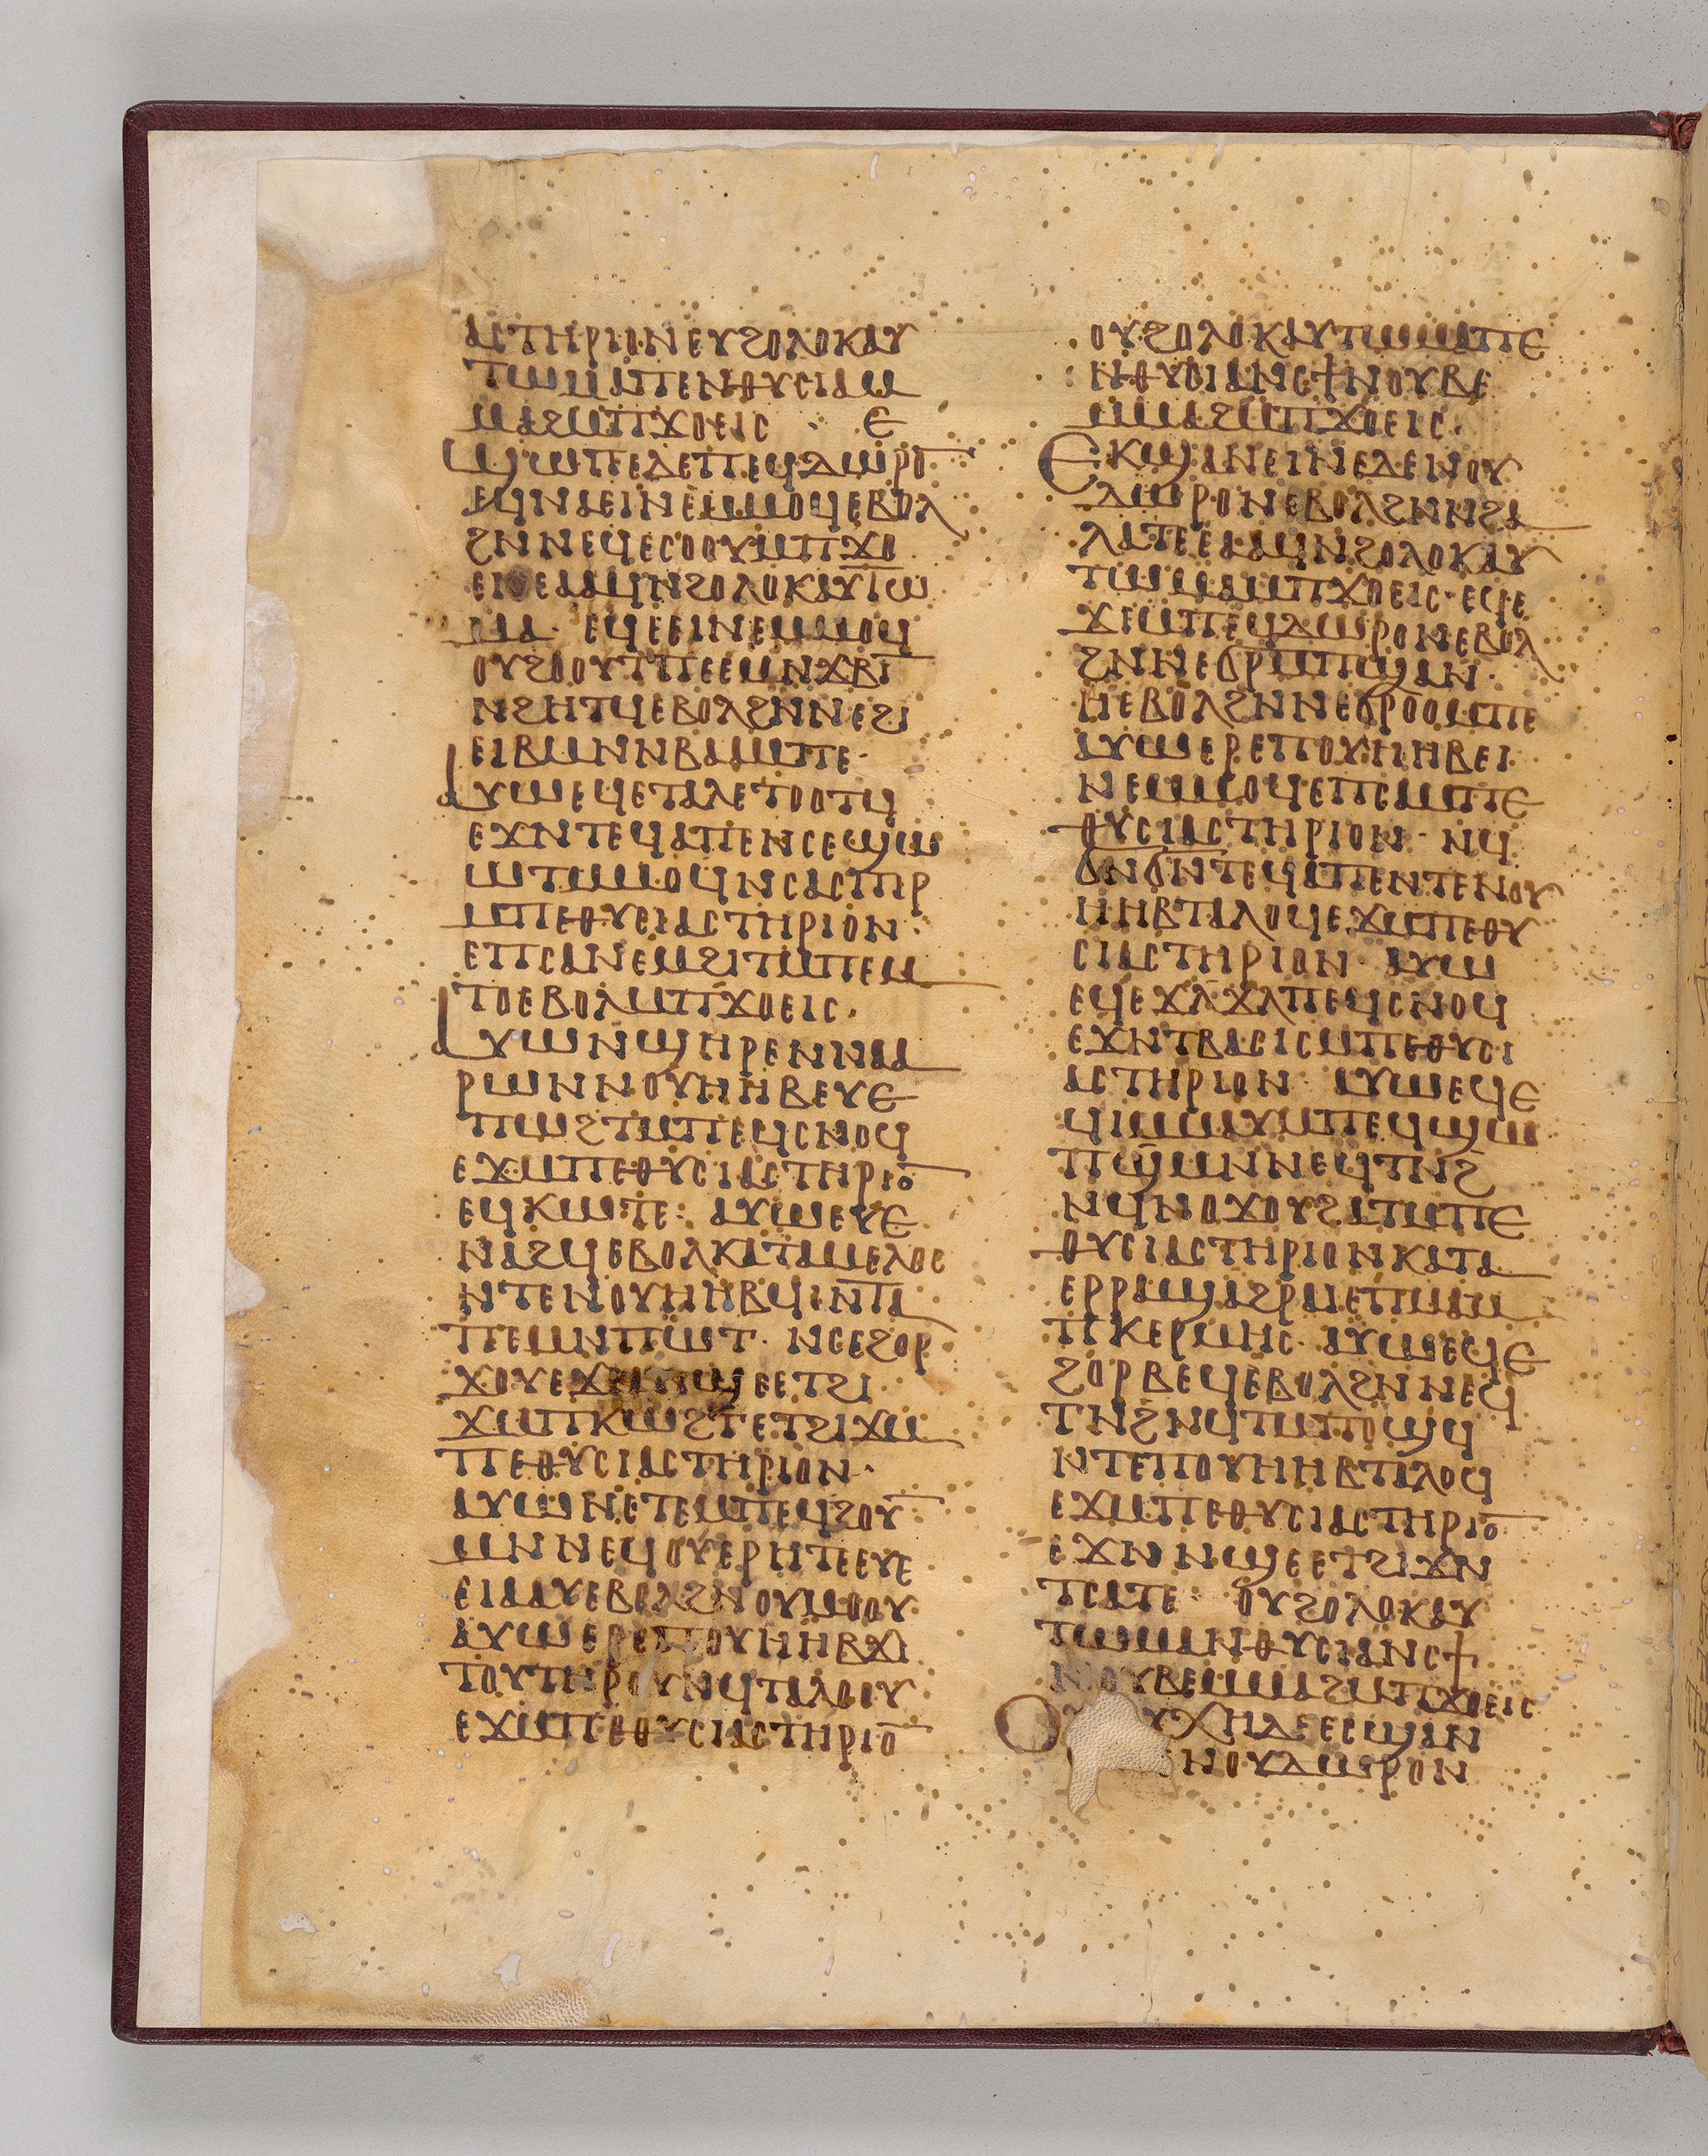 ⲁⲥⲧⲏⲣⲓⲟⲛⲉⲩϩⲟⲗⲟⲕⲁⲩ
ⲧⲱⲙⲁⲡⲉⲛⲑⲩⲥⲓⲁⲙ
ⲙⲁϩⲙⲡϫⲟⲉⲓⲥ · ⲉ
ϣⲱⲡⲉⲇⲉⲡⲉϥⲇⲱⲣⲟ̅
ⲉϥⲛⲁⲉⲓⲛⲉⲙⲙⲟϥⲉⲃⲟⲗ
ϩⲛⲛⲉϥⲉⲥⲟⲟⲩⲙⲡϫⲟ
ⲉⲓⲥⲉⲁⲁϥⲛϩⲟⲗⲟⲕⲁⲩⲧⲱ
ⲙⲁ· ⲉϥⲉⲉⲓⲛⲉⲙⲙⲟϥ
ⲟⲩϩⲟⲟⲩⲧⲡⲉⲉⲙⲛϫⲃⲓ̅
ⲛϩⲏⲧϥⲉⲃⲟⲗϩⲛⲛⲉϩⲓ
ⲉⲓⲃⲙⲛⲛⲃⲁⲙⲡⲉ·
ⲁⲩⲱⲉϥⲉⲧⲁⲗⲉⲧⲟⲟⲧϥ
ⲉϫⲛⲧⲉϥⲁⲡⲉⲛⲥⲉϣⲱ
ⲱⲧⲙⲙⲟϥⲛⲥⲁⲥⲡⲓⲣ
ⲙⲡⲉⲑⲩⲥⲓⲁⲥⲧⲏⲣⲓⲟⲛ·
ⲉⲡⲥⲁⲛⲉⲙϩⲓⲧⲙⲡⲉⲙ
ⲧⲟⲉⲃⲟⲗⲙⲡϫⲟⲉⲓⲥ·
ⲁⲩⲱⲛϣⲏⲣⲉⲛⲛⲁⲁ
ⲣⲱⲛⲛⲟⲩⲏⲏⲃⲉⲩⲉ
ⲡⲱϩⲧⲙⲡⲉϥⲥⲛⲟϥ
ⲉϫⲙⲡⲉⲑⲩⲥⲓⲁⲥⲧⲏⲣⲓⲟ̅
ⲉϥⲕⲱⲧⲉ· ⲁⲩⲱⲉⲩⲉ
ⲡⲁϩϥⲉⲃⲟⲗⲕⲁⲧⲁⲙⲉⲗⲟⲥ
ⲛⲧⲉⲛⲟⲩⲏⲏⲃϥⲓⲛⲧⲁ
ⲡⲉⲙⲛⲡⲱⲧ· ⲛⲥⲉϩⲟⲣ
ϫⲟⲩⲉϫⲛⲛϣⲉⲉⲧϩⲓ
ϫⲙⲡⲕⲱϩⲧⲉⲧϩⲓϫⲙ
ⲡⲉⲑⲩⲥⲓⲁⲥⲧⲏⲣⲓⲟⲛ·
ⲁⲩⲱⲛⲉⲧⲉⲙⲡⲉϥϩⲟⲩ̅
ⲙⲛⲛⲉϥⲟⲩⲉⲣⲏⲧⲉⲉⲩⲉ
ⲉⲓⲁⲁⲩⲉⲃⲟⲗϩⲛⲟⲩⲙⲟⲟⲩ
ⲁⲩⲱⲉⲣⲉⲡⲟⲩⲏⲏⲃϫⲓ
ⲧⲟⲩⲧⲏⲣⲟⲩⲛϥⲧⲁⲗⲟⲟⲩ
ⲉϫⲙⲡⲉⲑⲩⲥⲓⲁⲥⲧⲏⲣⲓⲟ̅
ⲟⲩϩⲟⲗⲟⲕⲁⲩⲧⲱⲙⲁⲡⲉ
ⲛⲑⲩⲥⲓⲁⲛⲥϯⲛⲟⲩⲃⲉ
ⲙⲙⲁϩⲙⲡϫⲟⲉⲓⲥ·
ⲉⲕϣⲁⲛⲉⲓⲛⲉⲇⲉⲓⲛⲟⲩ
ⲇⲱⲣⲟⲛⲉⲃⲟⲗϩⲛⲛϩⲁ
ⲗⲁⲧⲉⲉⲁⲁϥⲛϩⲟⲗⲟⲕⲁⲩ
ⲧⲱⲙⲁⲙⲡϫⲟⲉⲓⲥ· ⲉϥⲉ
ϫⲉⲙⲡⲉϥⲇⲱⲣⲟⲛⲉⲃⲟⲗ
ϩⲛⲛⲉϭⲣⲙⲡϣⲁⲛ·
ⲏⲉⲃⲟⲗϩⲛⲛⲉϭⲣⲟⲟⲙⲡⲉ
ⲁⲩⲱⲉⲣⲉⲡⲟⲩⲏⲏⲃⲉⲓ
ⲛⲉⲙⲙⲟϥⲉⲡⲉⲙⲡⲉ
ⲑⲩⲥⲓⲁⲥⲧⲏⲣⲓⲟⲛ· ⲛϥ
ϭⲛϭⲛⲧⲉϥⲁⲡⲉⲛⲧⲉⲛⲟⲩ
ⲏⲏⲃⲧⲁⲗⲟϥⲉϫⲙⲡⲉⲑⲩ
ⲥⲓⲁⲥⲧⲏⲣⲓⲟⲛ· ⲁⲩⲱ
ⲉϥⲉϫⲗϫⲗⲡⲉϥⲥⲛⲟϥ
ⲉϫⲛⲧⲃⲁⲥⲓⲥⲙⲡⲉⲑⲩⲥⲓ
ⲁⲥⲧⲏⲣⲓⲟⲛ· ⲁⲩⲱⲉϥⲉ
ϥⲓⲙⲙⲁⲩⲙⲡⲉϥϣⲱ
ⲡϣⲙⲛⲛⲉϥⲧⲛϩ
ⲛϥⲛⲟϫⲟⲩϩⲁⲧⲙⲡⲉ
ⲑⲩⲥⲓⲁⲥⲧⲏⲣⲓⲟⲛⲕⲁⲧⲁ
ⲉⲣⲣⲁϣⲁϩⲣⲁⲓⲉⲡⲙⲁⲛ
ⲧⲕⲉⲣⲙⲏⲥ· ⲁⲩⲱⲉϥⲉ
ϩⲟⲣⲃⲉϥⲉⲃⲟⲗϩⲛⲛⲉϥ
ⲧⲛϩⲛϥⲧⲙⲡⲟϣϥ
ⲛⲧⲉⲡⲟⲩⲏⲏⲃⲧⲁⲗⲟϥ
ⲉϫⲙⲡⲉⲑⲩⲥⲓⲁⲥⲧⲏⲣⲓⲟ̅
ⲉϫⲛⲛϣⲉⲉⲧϩⲓϫⲛ
ⲧⲥⲁⲧⲉ· ⲟⲩϩⲟⲗⲟⲕⲁⲩ
ⲧⲱⲙⲁⲛⲑⲩⲥⲓⲁⲛⲥϯ
ⲛⲟⲩⲃⲉⲙⲙⲁϩⲙⲡϫⲟⲉⲓⲥ
ⲩⲭⲏⲇⲉⲉⲥϣⲁⲛ
ⲛⲟⲩⲇⲱⲣⲟⲛ